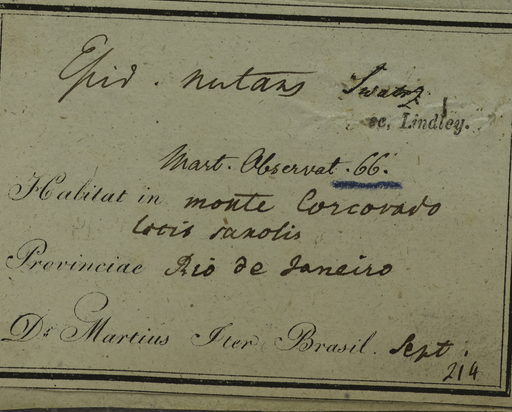 Epid. nutans Swartz
ec. Lindley.
Mart. Observat. 66.
Habitat in monte Corcovado
locis saxosis
Provinciae Rio de Janeiro
Dr Martius Iter Brasil. Sept.
214